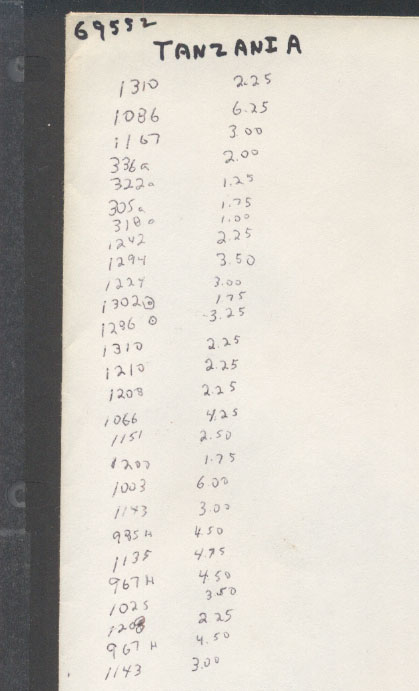 69552
TANZANIA
1310 2.25
1086 6.25
1167 3.00
336a 2.00
322a 1.25
305a 1.75
318a 1.00
1242 2.25
1294 3.50
1224 3.00
1302 1.75
1286 3.25
1310 2.25
1210 2.25
1208 2.25
1066 4.25
1151 2.50
1207 1.75
1003 6.00
1143 3.00
985H 4.50
1135 4.75
967H 4.50
1025 3.50
1208 2.25
967H 4.50
1143 3.00